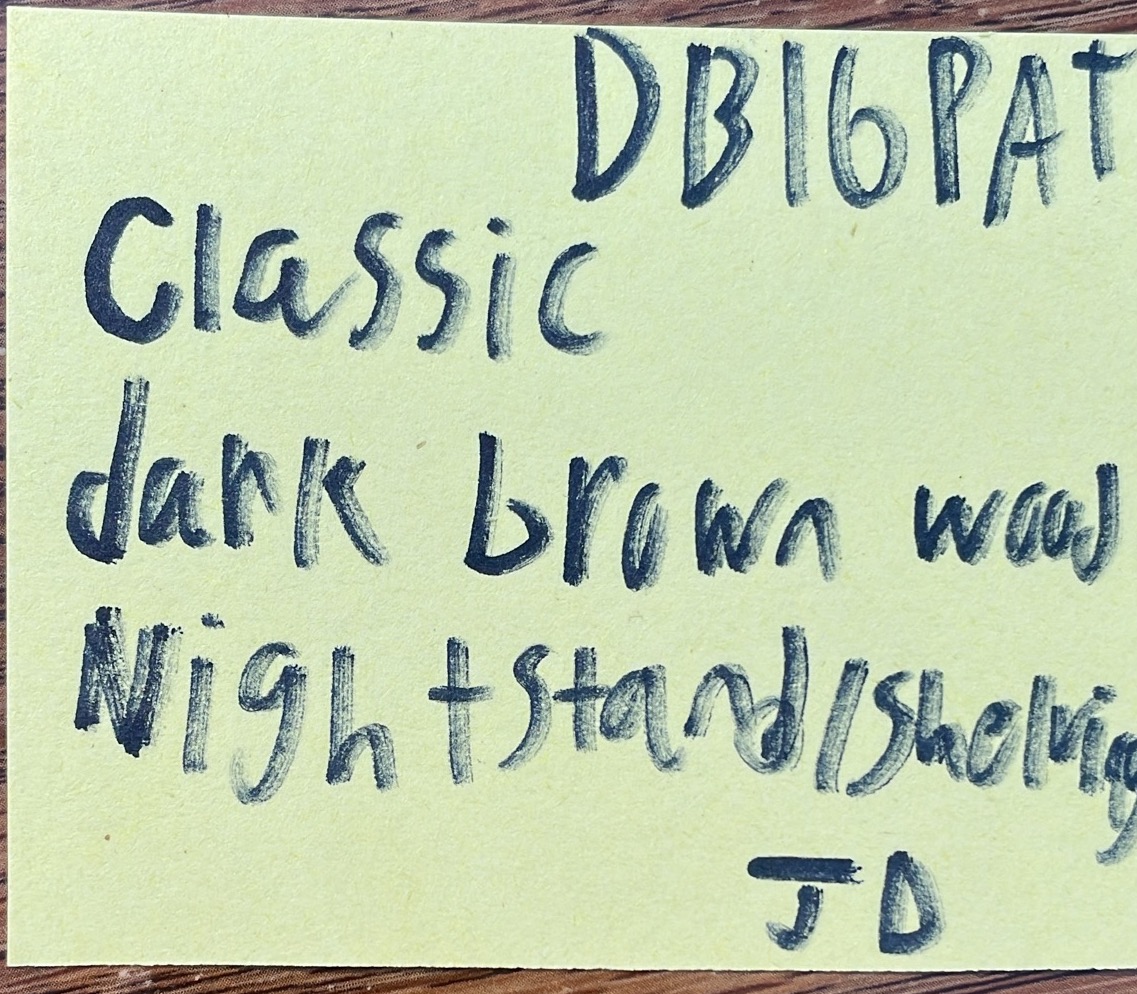 DB16PAT
Classic
dark brown wood
Nightstand/Shelving
JD